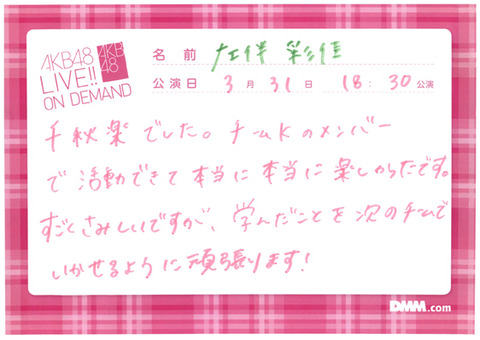 AKB48
LIVE!!
ON DEMAND
AKB
48
名前 左伴 彩佳
公演日 3月31日 18:30公演
千秋楽でした。チームKのメンバー
で活動できて本当に本当に楽しかったです。
すごくさみしいですが、学んだことを次のチームで
いかせるように頑張ります!
DMM.com